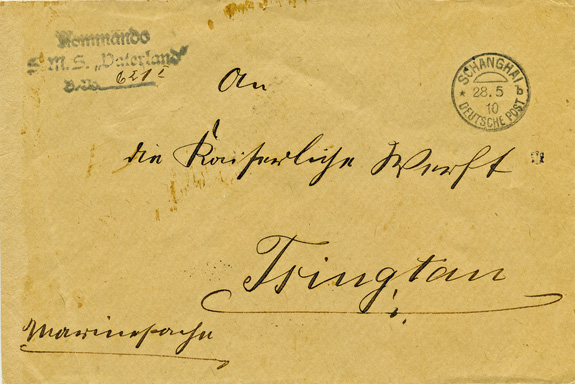 Kommando
S.M.S. „Vaterland“
An
SCHANGHAI
b
* 28.5 *
10
DEUTSCHE POST
die Kaiserliche Werft
Tsingtau
Marinesache